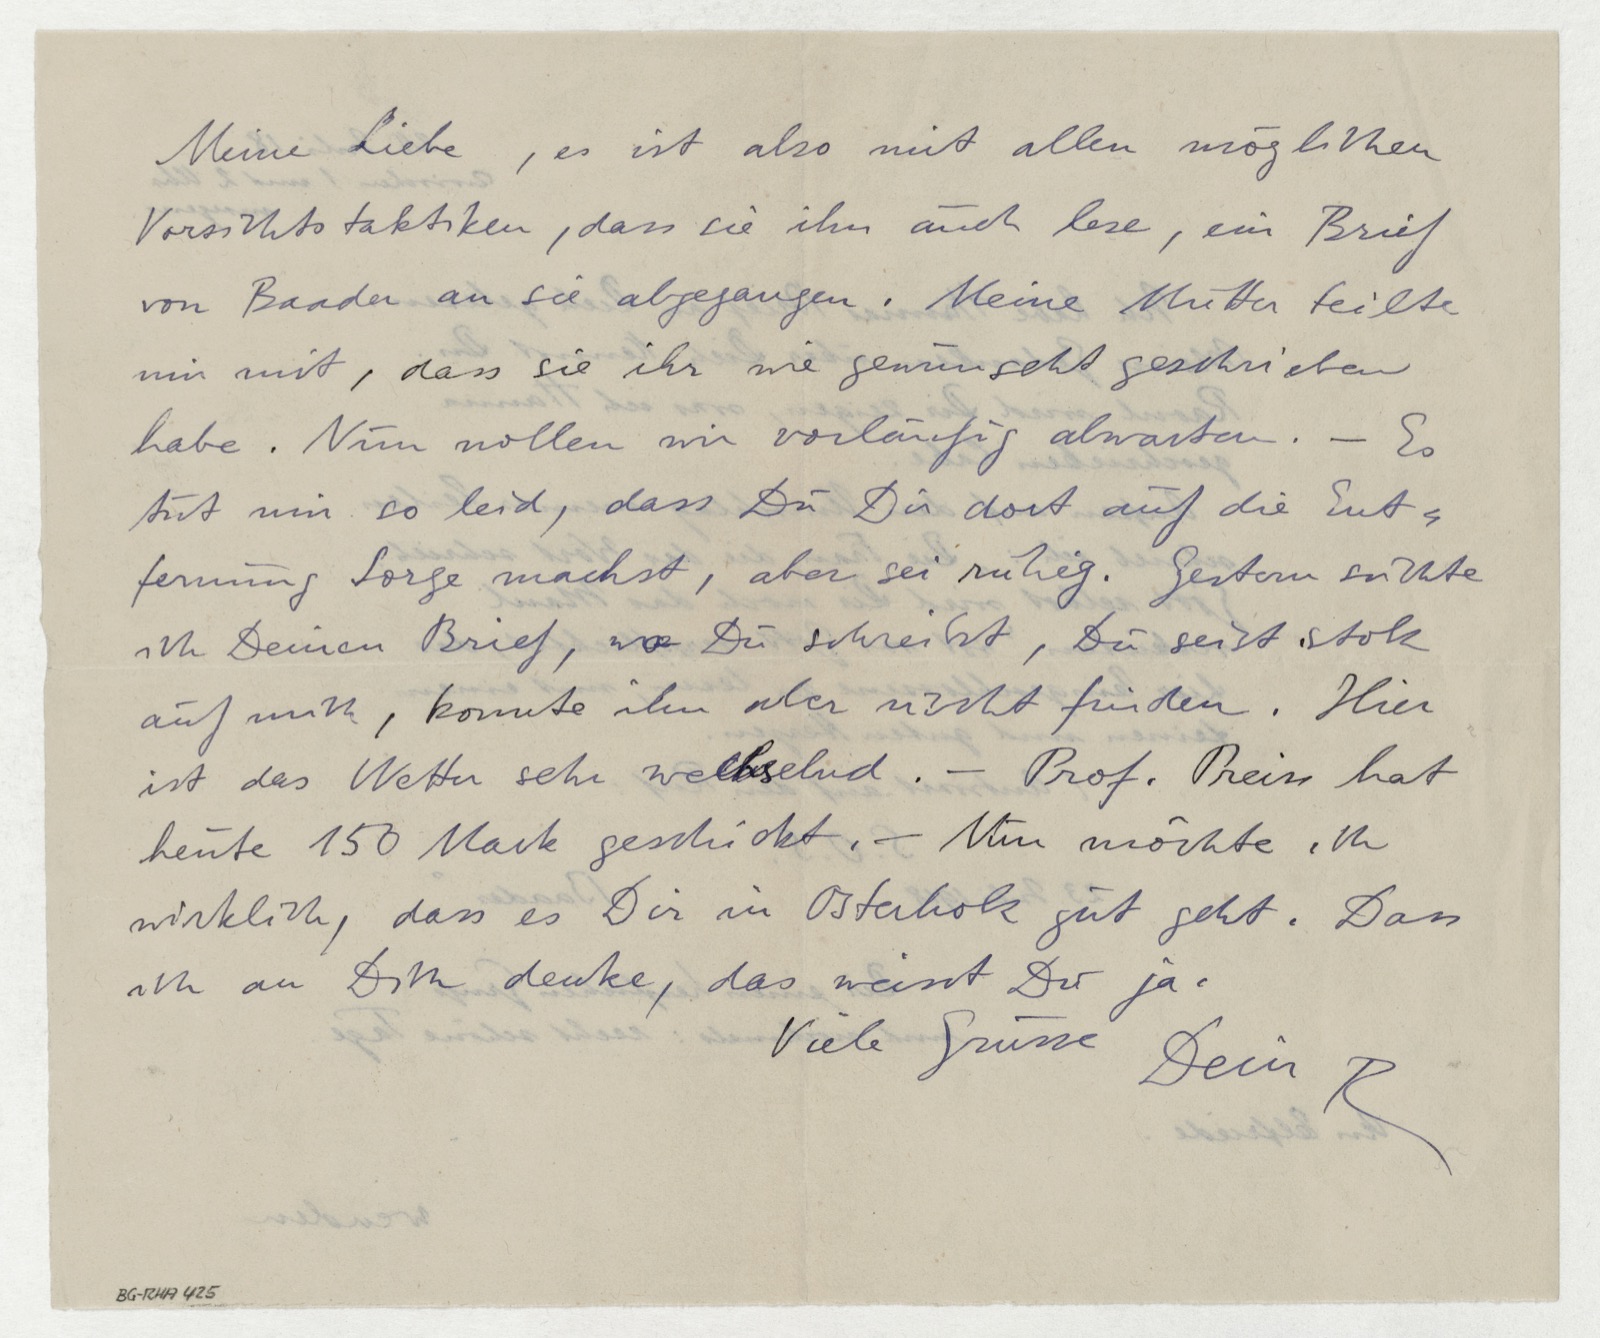 Meine Liebe, es ist also mit allen möglichen
Vorsichtstaktiken, dass sie ihn auch lese, ein Brief
von Baader an sie abgegangen. Meine Mutter teilte
mir mit, dass sie ihr wie gewünscht geschrieben
habe. Nun wollen wir vorläufig abwarten. – Es
tut mir so leid, dass Du Dir dort auf die Ent-
fernung Sorge machst, aber sei ruhig. Gestern suchte
ich Deinen Brief, wo Du schreibst, Du seist stolz
auf mich, konnte ihn aber nicht finden. Hier
ist das Wetter sehr wechselnd. – Prof. Preiss hat
heute 150 Mark geschickt. – Nun möchte ich
wirklich, dass es Dir in Osterholz gut geht. Dass
ich an Dich denke, das weisst Du ja.
Viele Grüsse Dein R
BG-RHA 425